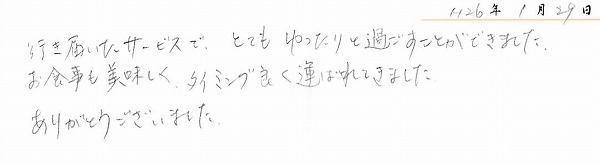 H26年 1月29日
行き届いたサービスで、とてもゆったりと過ごすことができました。
お食事も美味しく、タイミング良く運ばれてきました。
ありがとうございました。